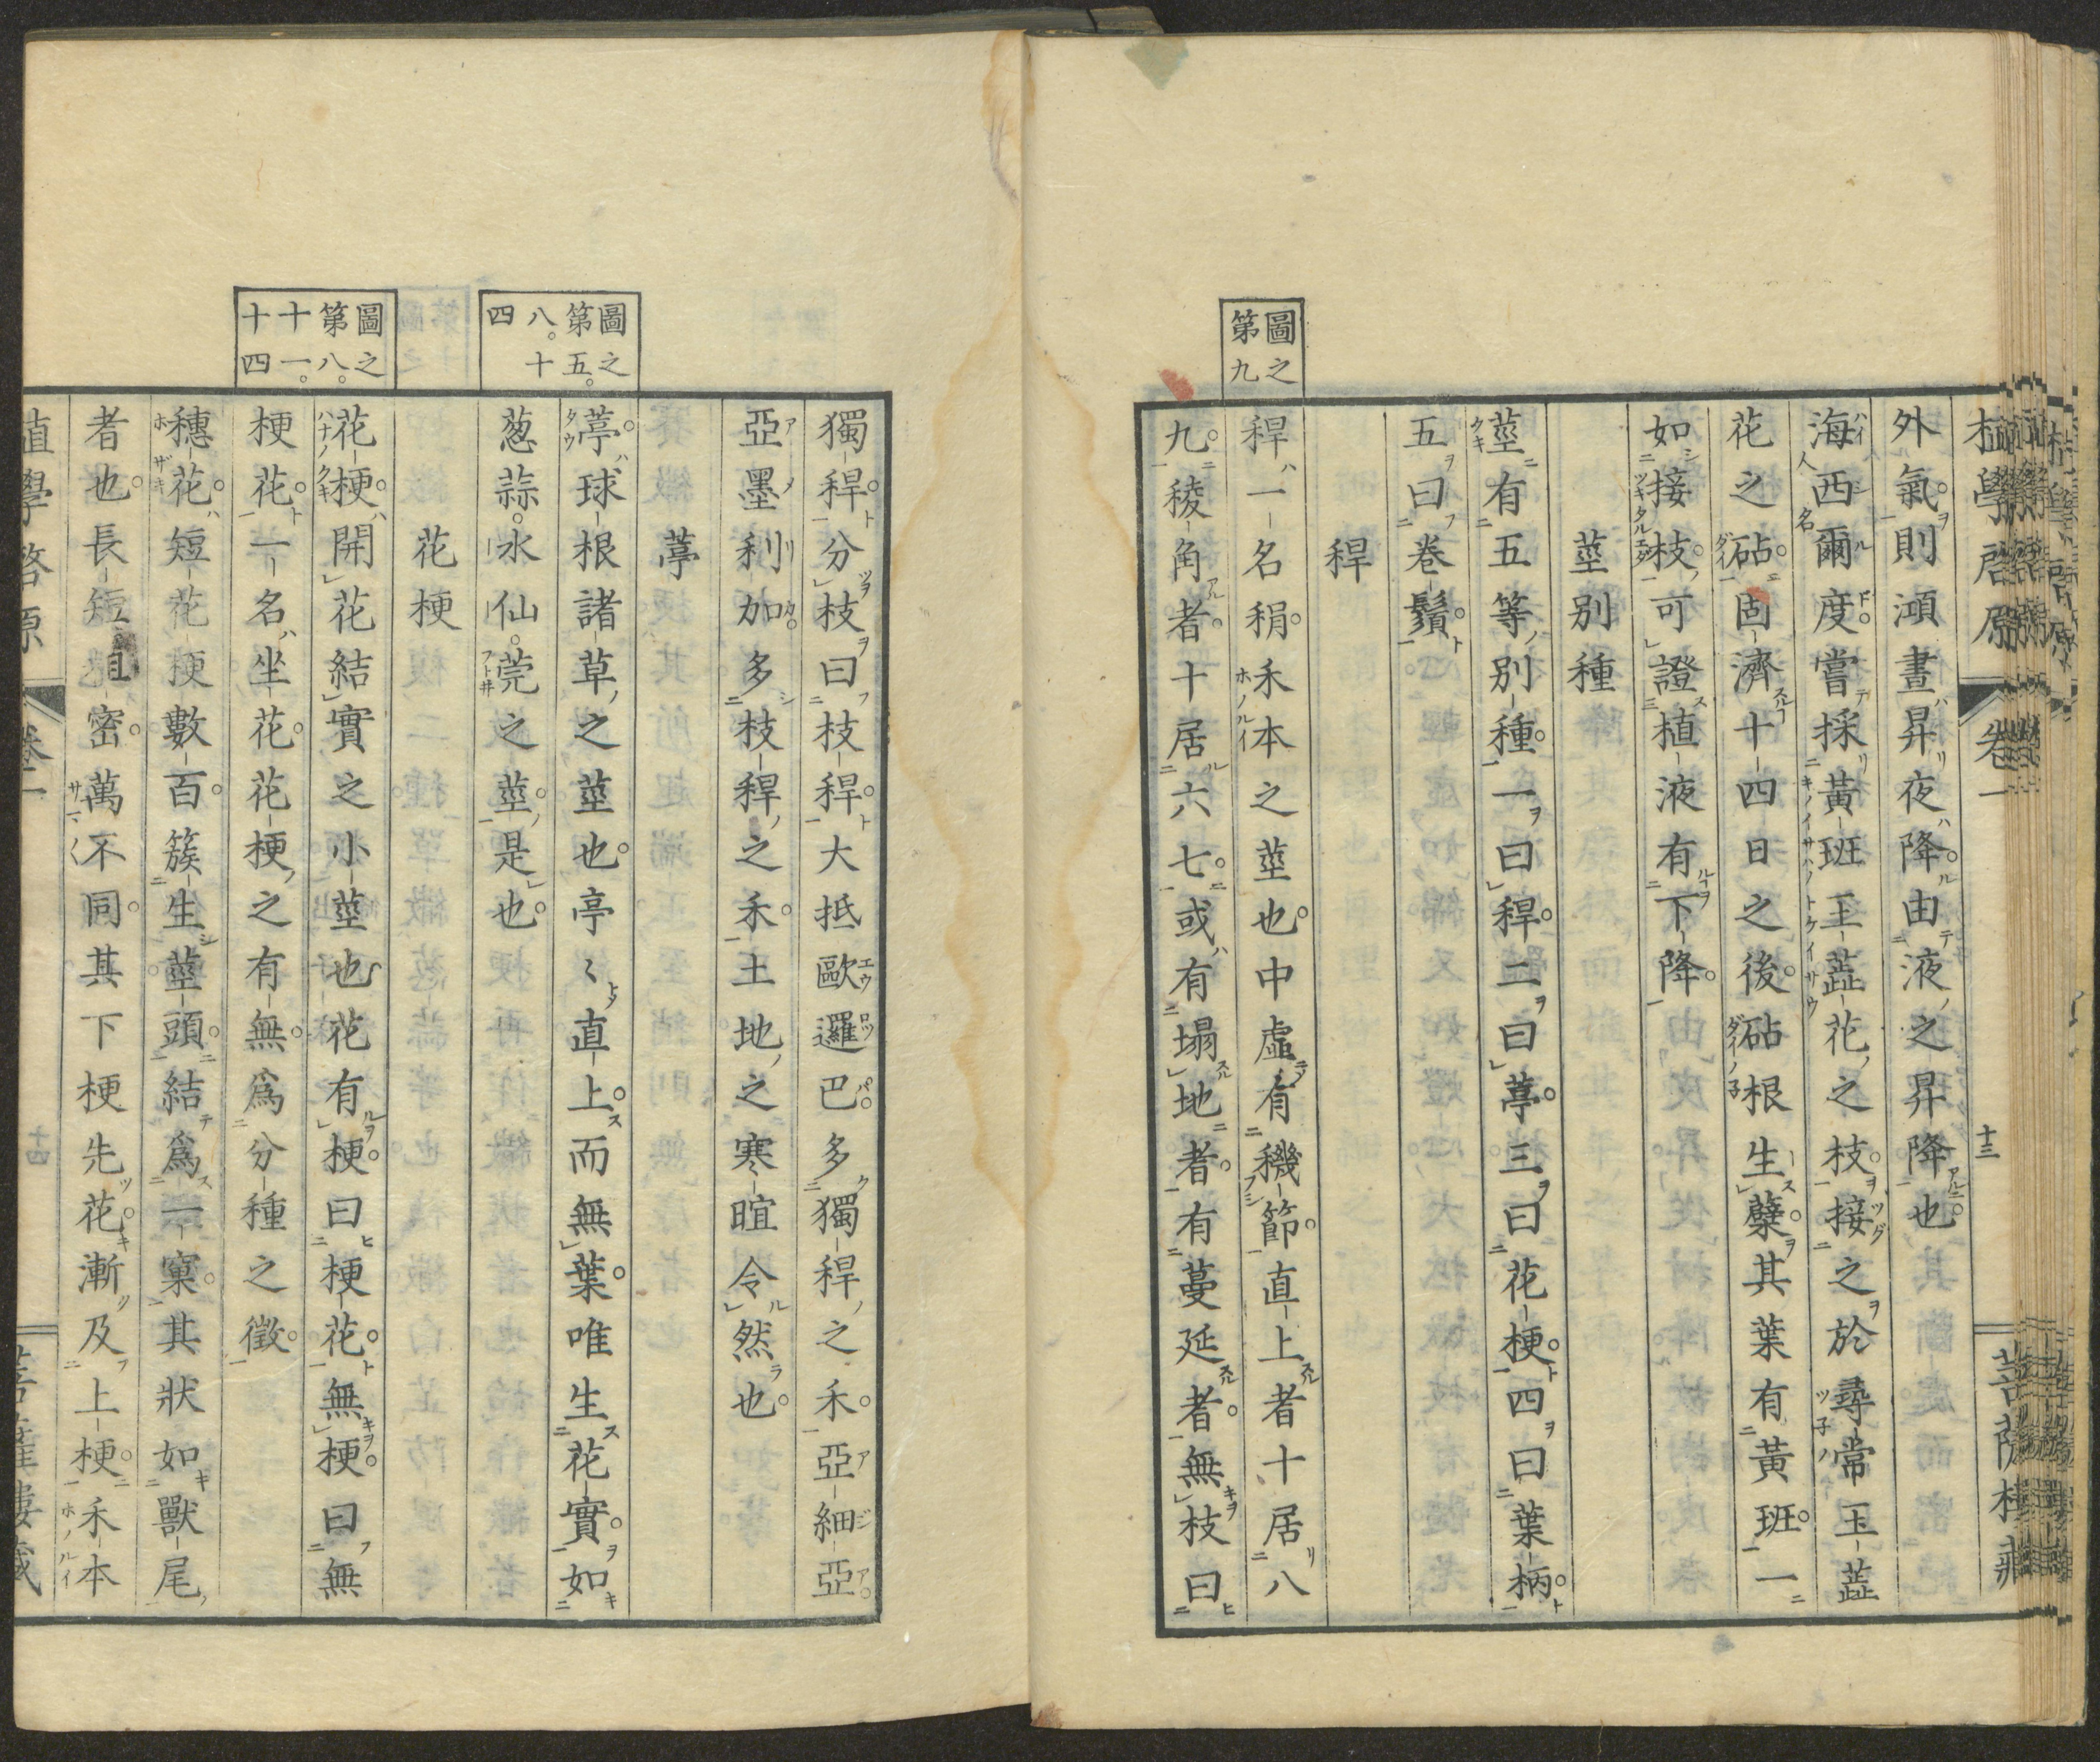 植學啓原 卷一 十三 菩薩樓藏
外氣則澒晝昇夜降由液之昇降也
海西爾度嘗採黃班玉蕋花之枝接之於尋常玉蕋
花之砧固濟十四日之後砧根生蘖其葉有黃班一
如接枝可證植液有下降
莖別種
莖有五等別種一曰稈二曰葶三曰花梗四曰葉柄
五曰卷鬚
稈
圖之第九
稈一名稍禾本之莖也中虛有機節直上者十居八
九稜角者十居六七或有塌地者有蔓延者無枝曰
獨稈分枝曰枝稈大抵歐邏巴多獨稈之禾亞細亞
亞墨利加多枝稈之禾土地之寒暄令然也
葶
圖之第五。八。十四
葶球根諸草之莖也亭〻直上而無葉唯生花實如
葱蒜。水仙。莞之莖是也
花梗
圖之第八。十一。十四
花梗開花結實之小莖也花有梗曰梗花無梗曰無
梗花一名坐花花梗之有無爲分種之徵
穗花短花梗數百簇生莖頭結爲一窠其狀如獸尾
者也長短粗密萬不同其下梗先花漸及上梗禾本
植學啓原 卷一 十四 菩薩樓藏